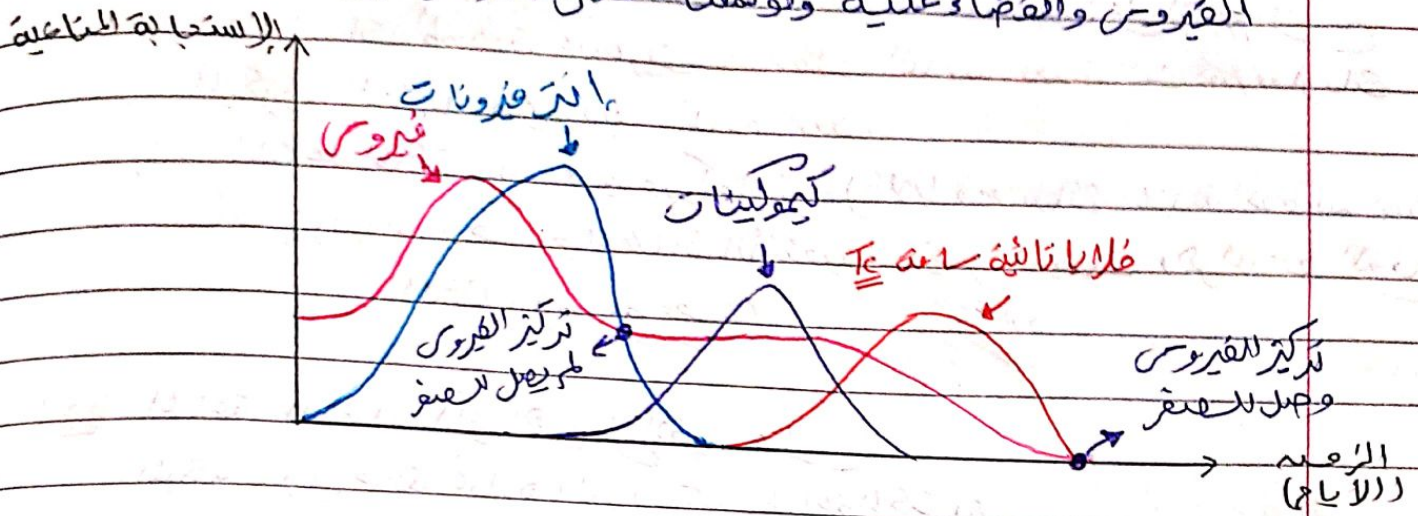 الفيروس والقضاء عليه
الإستجابة المناعية
انترفيرونات
فيروس
كيموكينات
خلايا تائية سامة Tc
تركيز الفيروس
لم يصل للصفر
تركيز الفيروس
وصل للصفر
الزمن
(الأيام)